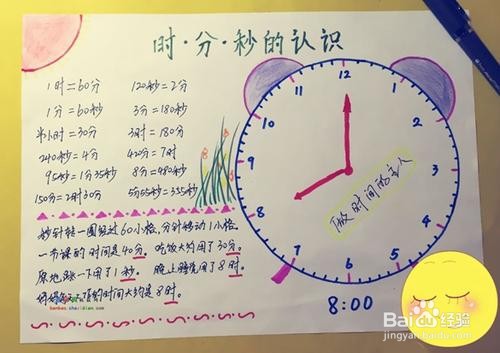 时·分·秒的认识
1时=60分 120秒=2分
1分=60秒 3分=180秒
半小时=30分 3时=180分
240秒=4分 420分=7时
95秒=1分35秒 8分=480秒
150分=2时30分 5分55秒=355秒
秒针转一圈走过60小格,分针转动1小格。
一节课的时间是40分。吃饭大约用了30分。
原地跳一下用了1秒。晚上睡觉用了8时。
的时间大约是8时。
baobao.sheidian.com
12
1
2
3
4
5
6
7
8
9
10
11
做时间的主人
8:00
Baidu经验
jingyan.baidu.com